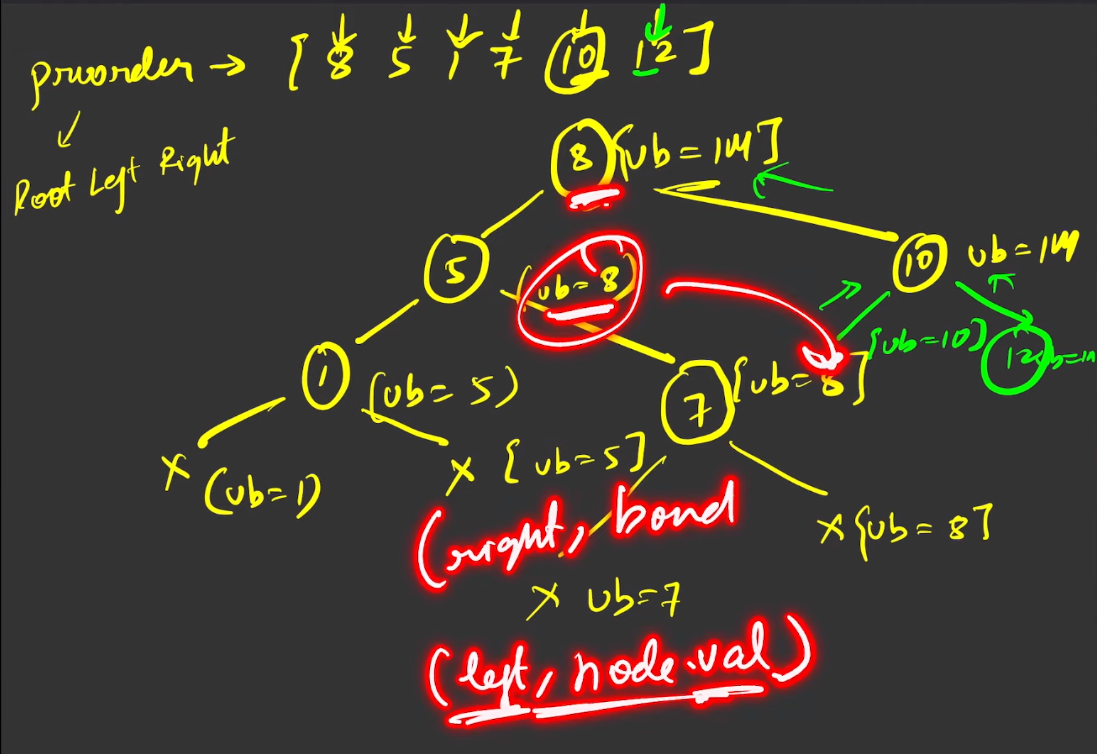 preorder → [ 8 5 1 7 10 12 ]
Root Left Right
8 [ub = IM]
5 (ub = 8) 10 ub = IM
[ub=10] 12
1 (ub = 5) 7 [ub = 8]
x (ub=1) x [ub=5]
(right, bond x [ub = 8]
x ub=7
(left, node.val)